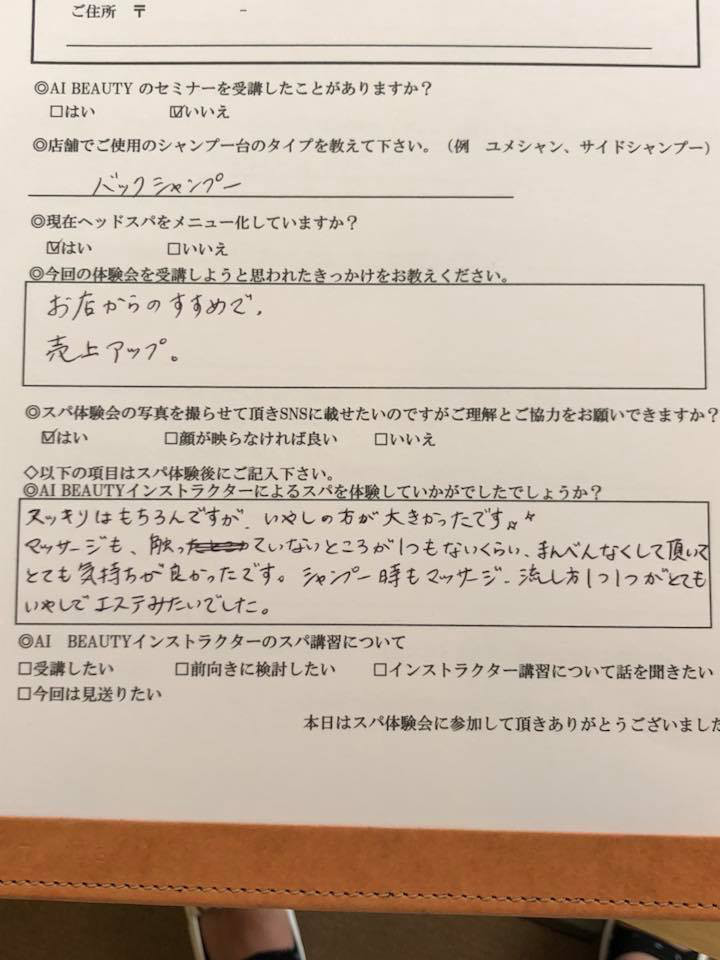 ご住所 〒 -
◎AI BEAUTY のセミナーを受講したことがありますか？
□はい ☑いいえ
◎店舗でご使用のシャンプー台のタイプを教えて下さい。（例 ユメシャン、サイドシャンプー）
バックシャンプー
◎現在ヘッドスパをメニュー化していますか？
☑はい □いいえ
◎今回の体験会を受講しようと思われたきっかけをお教えください。
お店からのすすめで、
売上アップ。
◎スパ体験会の写真を撮らせて頂きSNSに載せたいのですがご理解とご協力をお願いできますか？
☑はい □顔が映らなければ良い □いいえ
◇以下の項目はスパ体験後にご記入下さい。
◎AI BEAUTYインストラクターによるスパを体験していかがでしたでしょうか？
スッキリはもちろんですが、いやしの方が大きかったです
マッサージも、触っていないところが1つもないくらい、まんべんなくして頂いて
とても気持ちが良かったです。シャンプー時もマッサージ、流し方1つ1つがとても
いやしでエステみたいでした。
◎AI BEAUTYインストラクターのスパ講習について
□受講したい □前向きに検討したい □インストラクター講習について話を聞きたい
□今回は見送りたい
本日はスパ体験会に参加して頂きありがとうございました